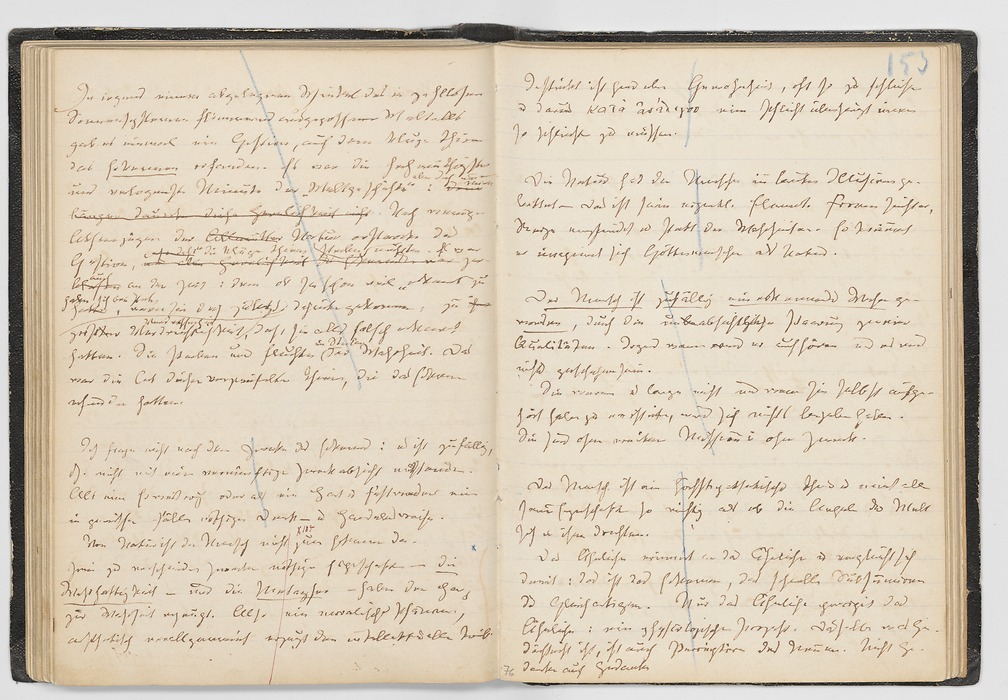 In irgend einem abgelegenen Winkel des in zahllosen
Sonnensystemen flimmernd ausgegossenen Weltalls
gab es einmal ein Gestirn, auf dem kluge Thiere
das Erkennen erfanden. Es war die hochmüthigste
und verlogenste Minute der Weltgeschichte: aber doch nur
Nach wenigen
Athemzügen der Natur erstarrte das
Gestirn, und die klugen Thiere mußten sterben. Es war
an der Zeit: denn ob sie schon viel erkannt zu
haben sich brüsteten, waren sie doch zuletzt dahinter gekommen, zu
großer Verdrossenheit, daß sie alles falsch erkannt
hatten. Sie starben und fluchten im Sterben der Wahrheit. Das
war die Art dieser verzweifelten Thiere, die das Erkennen
erfunden hatten.
Ich frage nicht nach dem Zwecke des Erkennens: es ist zufällig,
dh. nicht mit einer vernünftigen Zweckabsicht entstanden.
Als eine Erweiterung oder als ein Hart- u Festwerden einer
in gewissen Fällen nöthigen Denk- u Handelnsweise.
Von Natur ist der Mensch nicht zum Erkennen da.
Zwei zu verschiedenen Zwecken nöthige Eigenschaften — die
Wahrhaftigkeit — und die Metapher — haben den Hang
zur Wahrheit erzeugt. Also ein moralisches Phänomen,
aesthetisch verallgemeinert, erzeugt den intellektuellen Trieb.
153
Instinkt ist eben Gewohnheit, oft so zu schließen
u daraus κατὰ ἀνάλογον eine Pflicht überhaupt immer
so schließen zu müssen.
Die Natur hat den Menschen in lauter Illusionen ge-
bettet. – Das ist sein eigentl. Element. Formen sieht er,
Reize empfindet er statt der Wahrheiten. Er träumt
er imaginirt sich Göttermenschen als Natur.
Der Mensch ist zufällig ein erkennendes Wesen ge-
worden, durch die unabsichtliche Paarung zweier
Qualitäten. Irgend wann wird er aufhören und es wird
nichts geschehen sein.
Sie waren es lange nicht und wenn sie selbst aufge-
hört haben zu existiren, wird sich nichts begeben haben.
Sie sind ohne weitere Mission u ohne Zweck.
Der Mensch ist ein höchst pathetisches Thier u nimmt alle
seine Eigenschaften so wichtig als ob die Angeln der Welt
sich in ihnen drehten.
Das Ähnliche erinnert an das Ähnliche u vergleicht sich
damit: das ist das Erkennen, das schnelle Subsumiren
des Gleichartigen. Nur das Ähnliche percipirt das
Ähnliche: ein physiologischer Prozeß. Dasselbe was Ge-
dächtniß ist, ist auch Perception des Neuen. Nicht Ge-
danke auf Gedanke
76